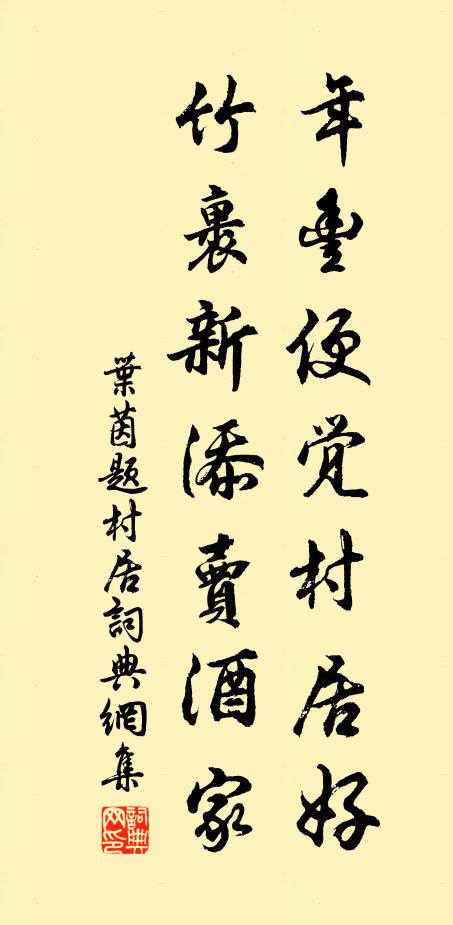 年豐便覚村居好
竹裏新添賣酒家
葉茵題村居詞典網集
詞典网印